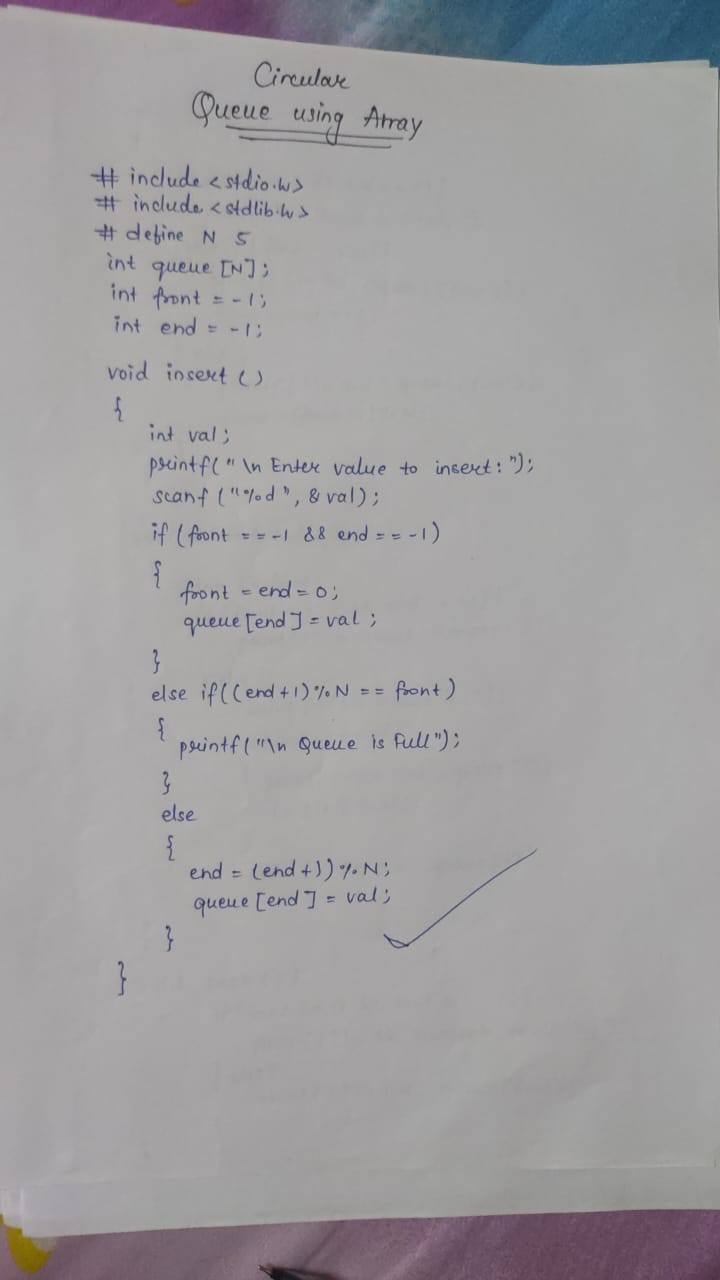 Circular
Queue using Array
# include <stdio.h>
# include <stdlib.h>
# define N 5
int queue [N];
int front = -1;
int end = -1;
void insert ()
{
int val;
printf(" \n Enter value to insert: ");
scanf ("%d", & val);
if (front == -1 && end == -1)
{
front = end = 0;
queue [end] = val;
}
else if ((end+1) % N == front)
{
printf("\n Queue is Full");
}
else
{
end = (end+1) % N;
queue [end] = val;
}
}